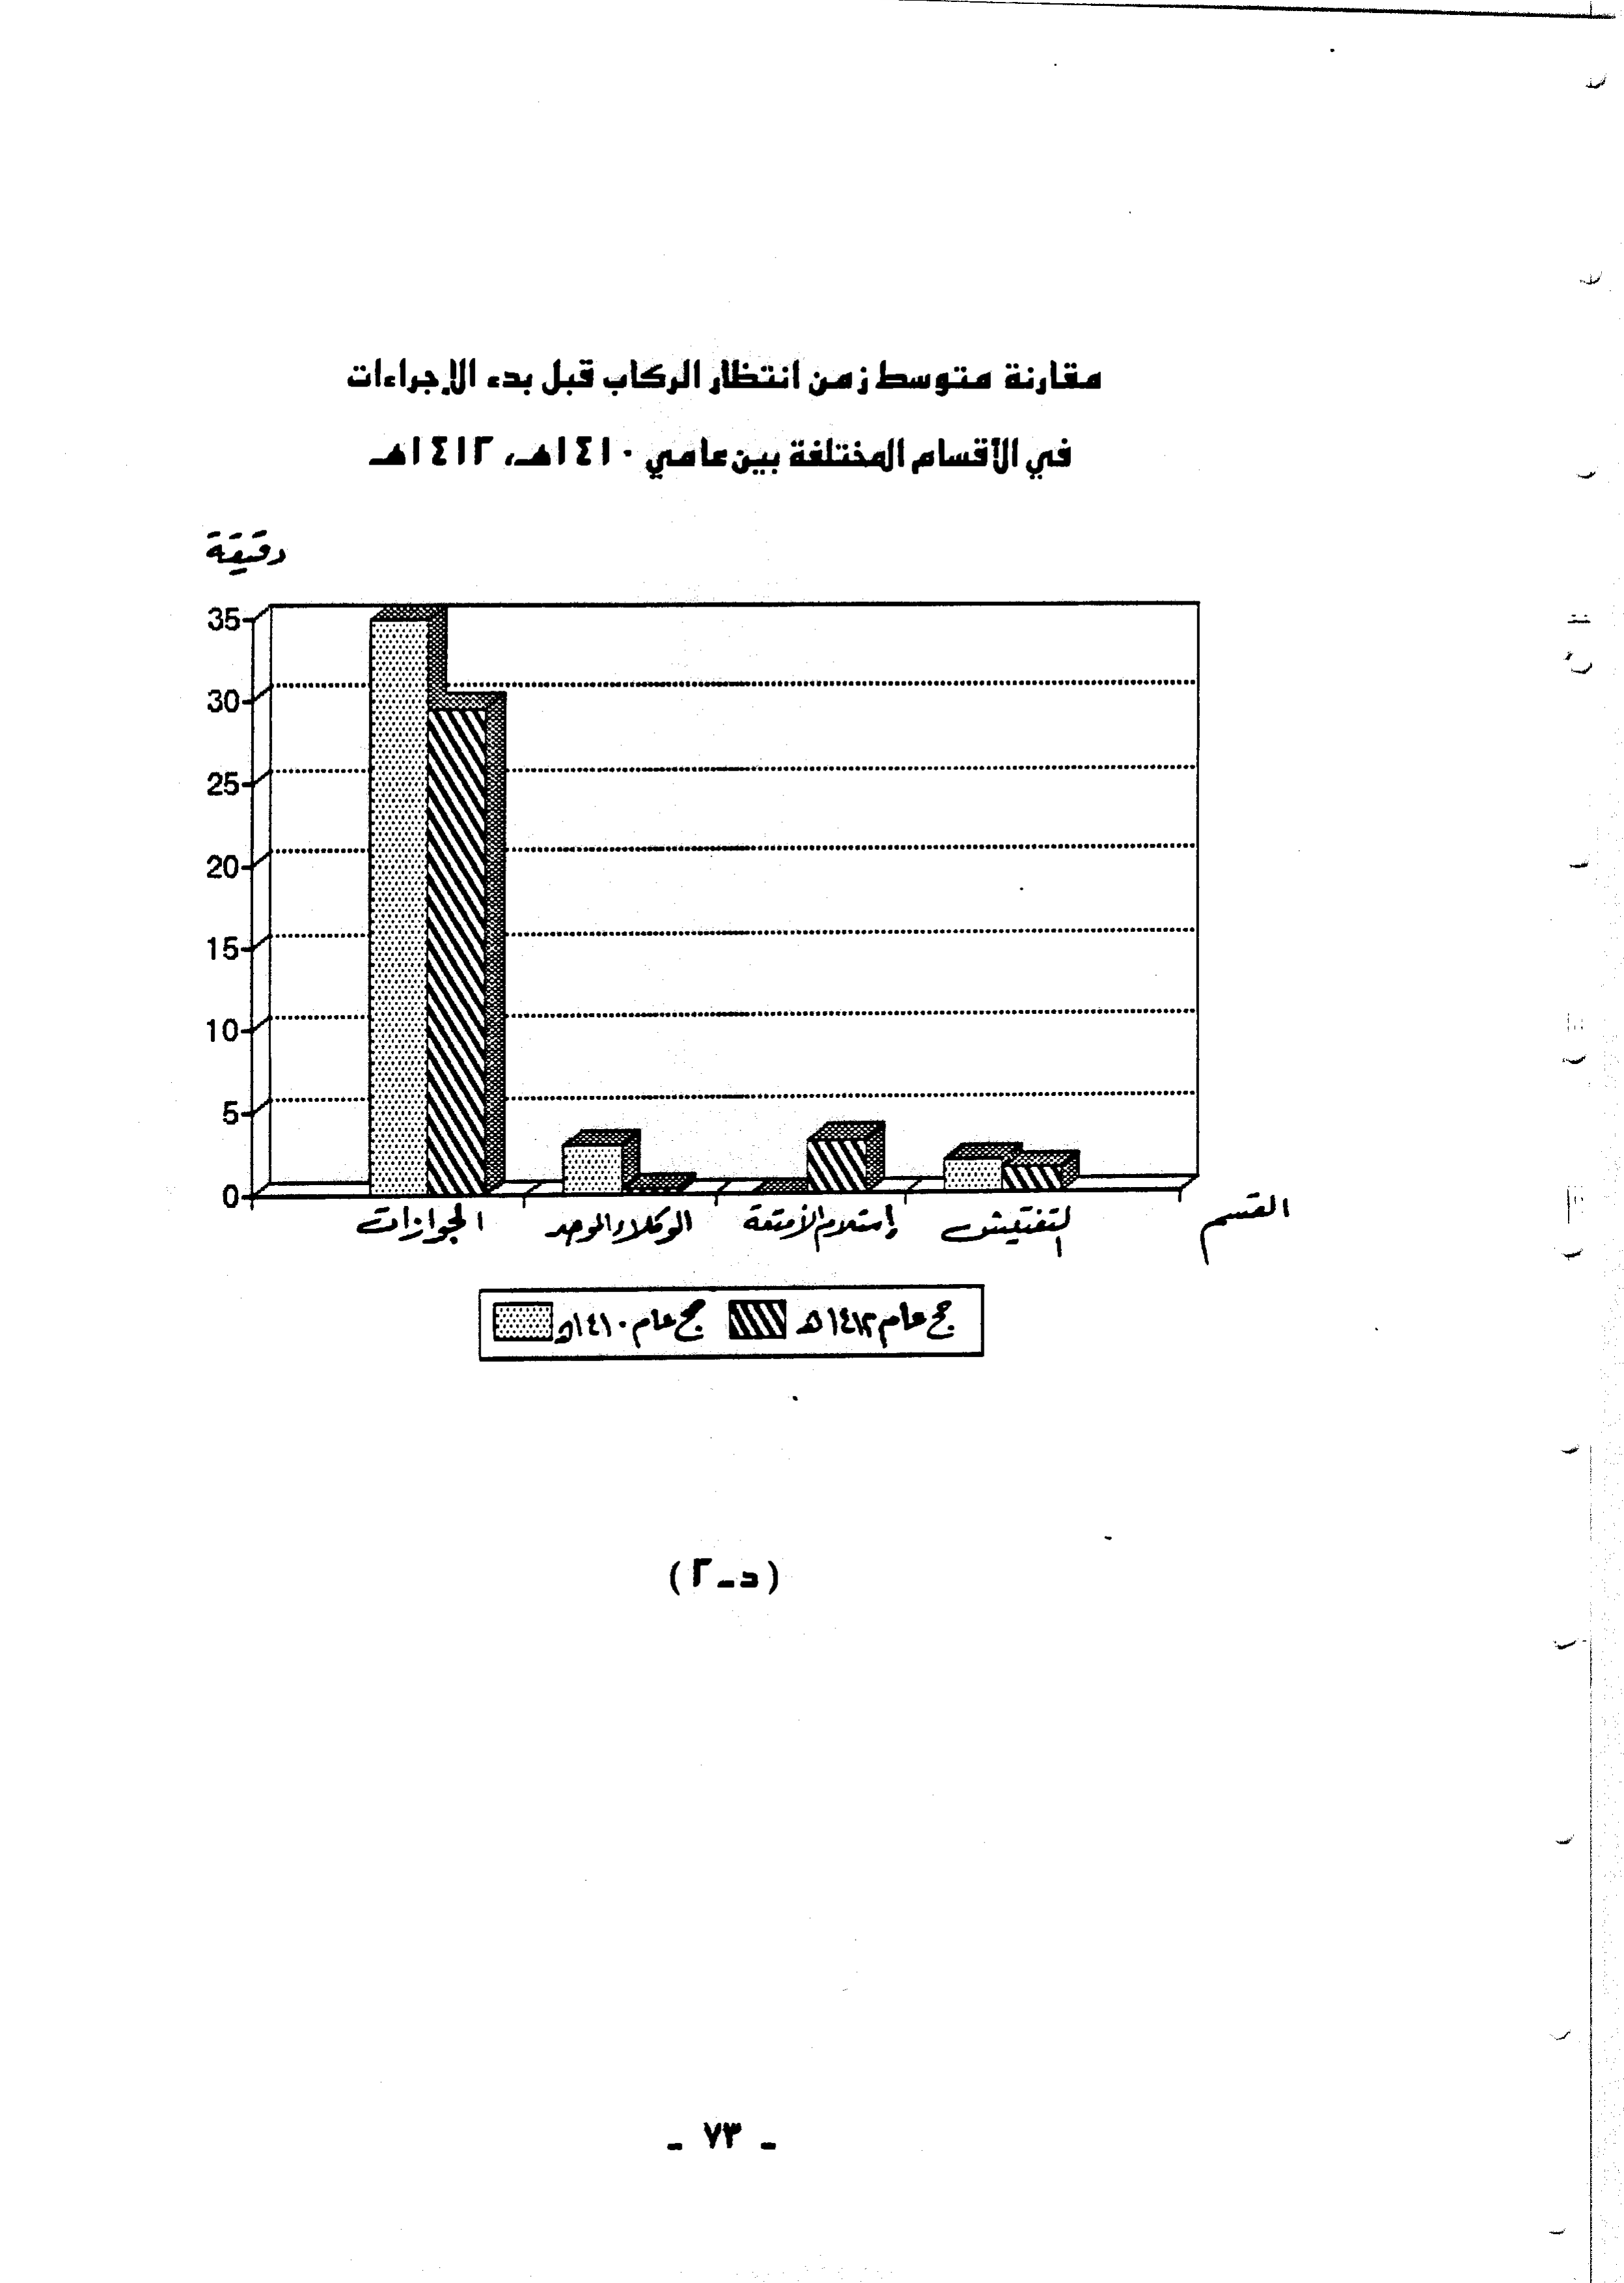 مقارنة متوسط زمن انتظار الركاب قبل بدء الإجراءات
في الأقسام المختلفة بين عامي ١٤١٠هـ، ١٤١٢هـ
دقيقة
35
30
25
20
15
10
5
0
الجوازات الوكلاء الموحد إستلام الأمتعة التفتيش القسم
حج عام ١٤١٢هـ حج عام ١٤١٠هـ
(د-٢)
- ٧٣ -